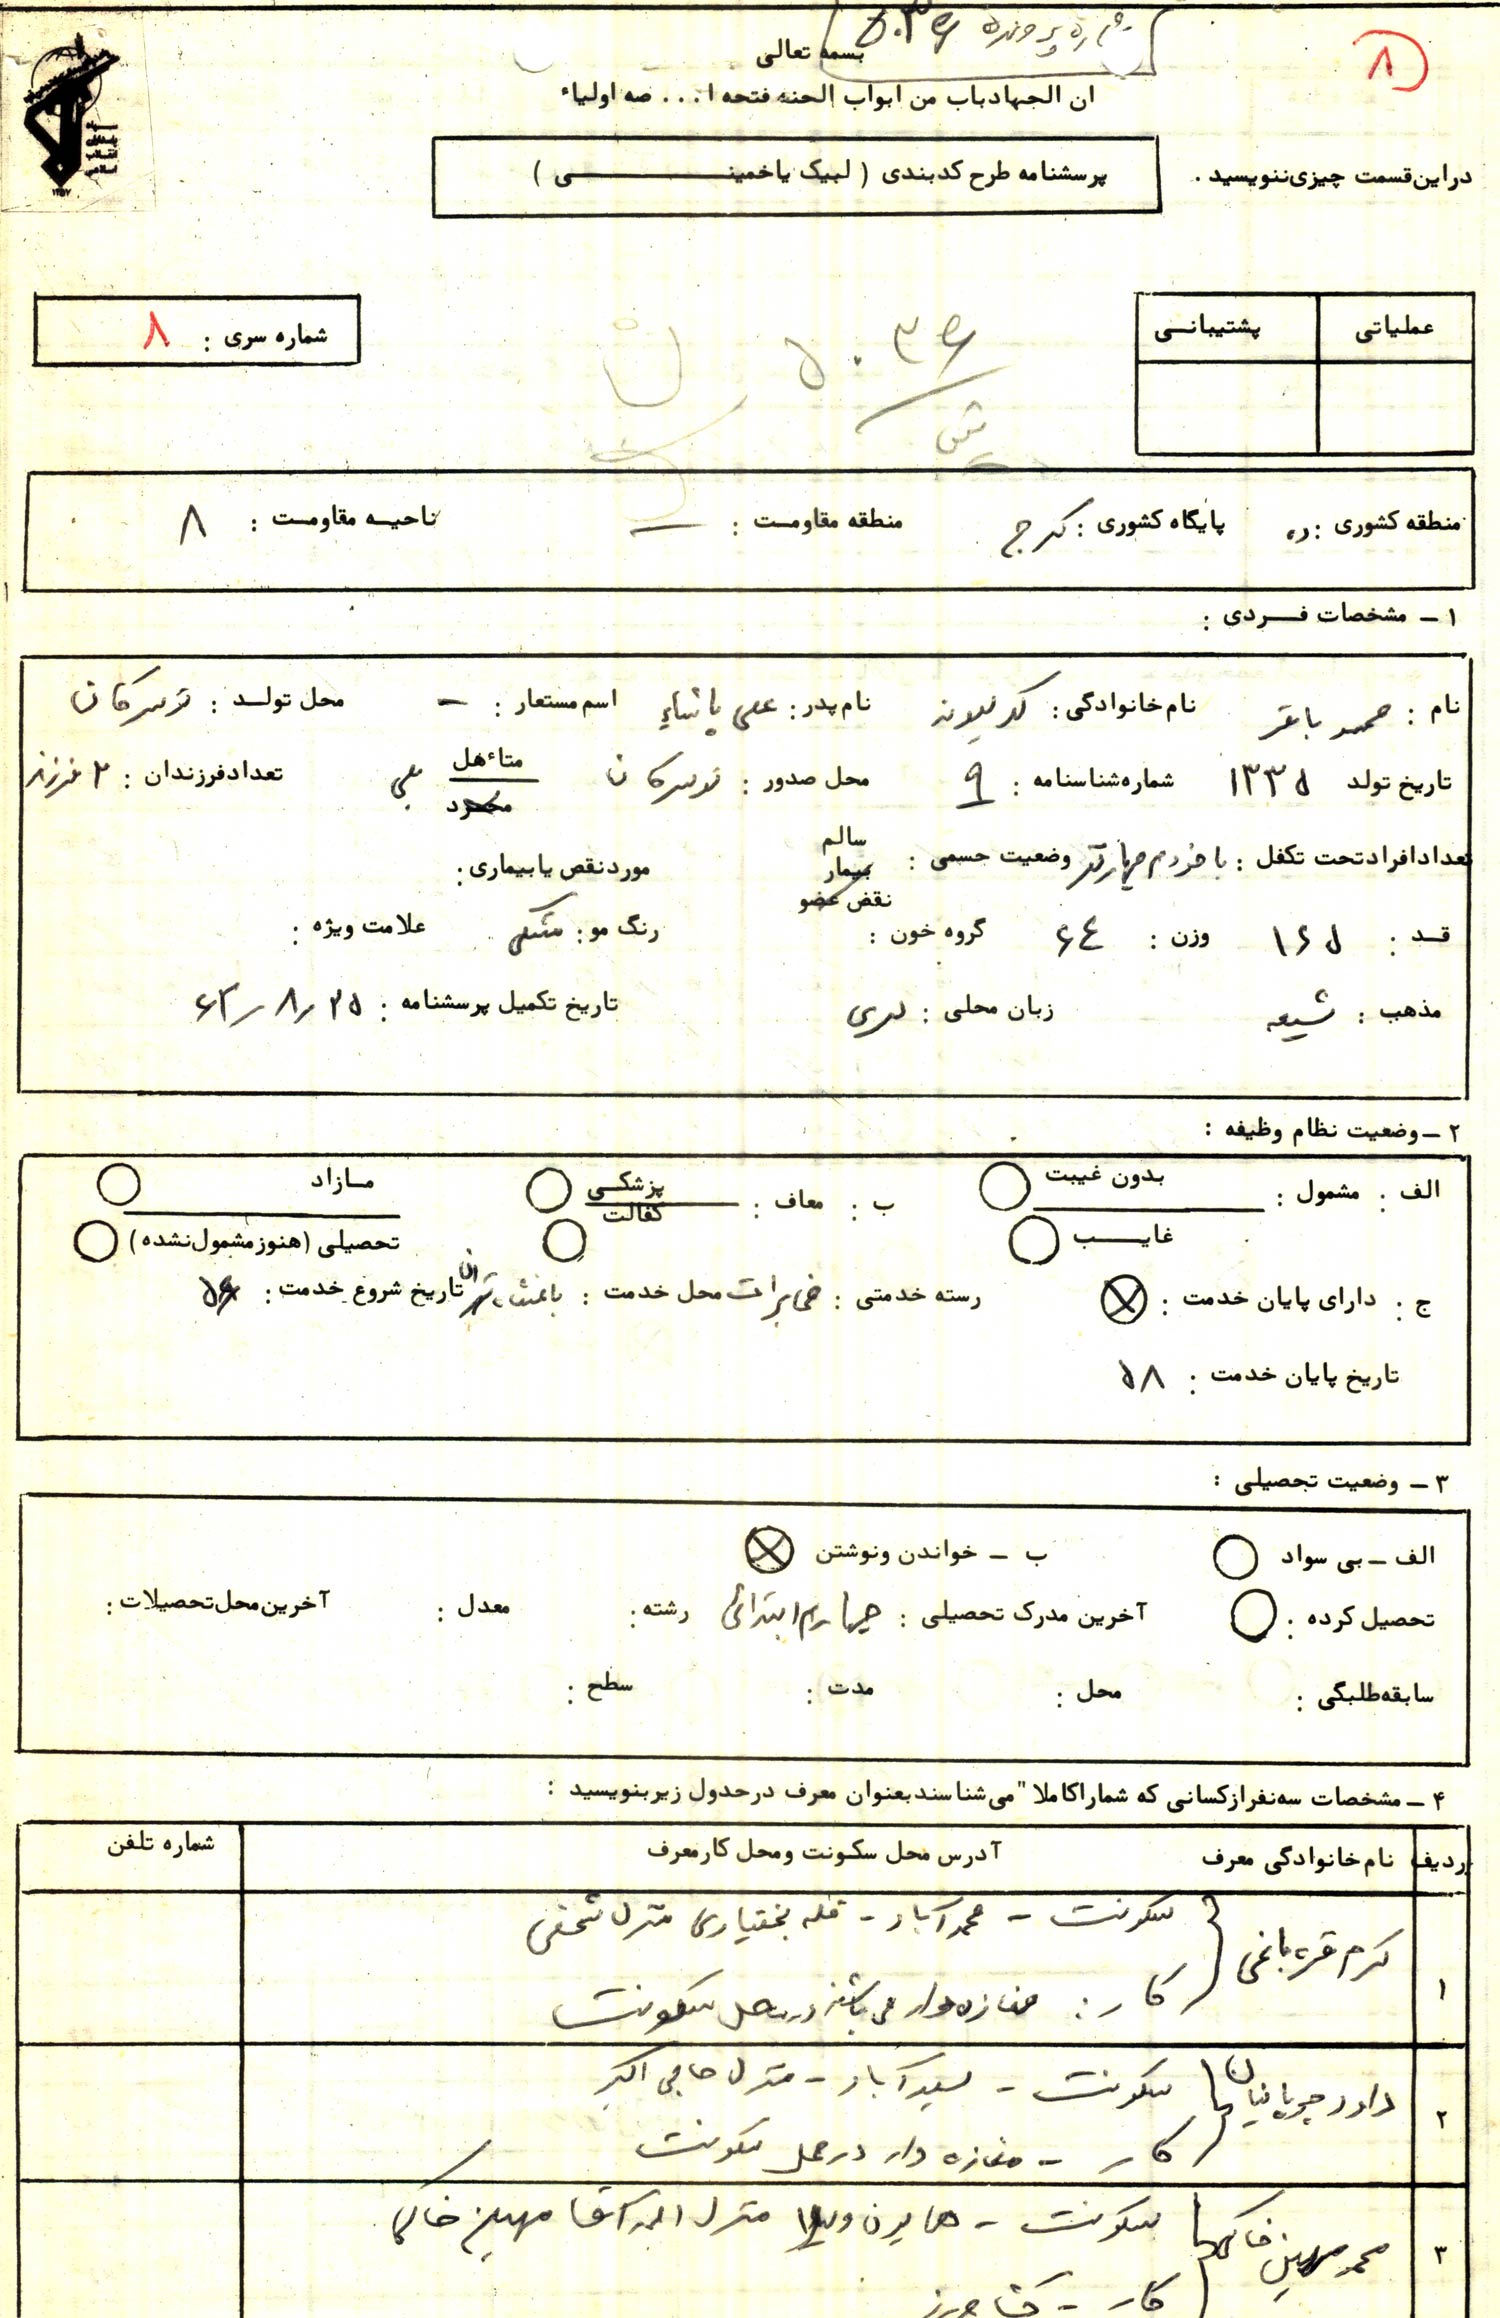 شماره پرونده ۵۰۳۶
۸
بسمه تعالی
ان الجهاد باب من ابواب الجنه فتحه ا... صه اولیاء
در این قسمت چیزی ننویسید .
پرسشنامه طرح کدبندی ( لبیک یا خمینی )
عملیاتی پشتیبانی
شماره سری : ۸
۵۰۳۶
منطقه کشوری : ۱۰ پایگاه کشوری : کرج منطقه مقاومت : – ناحیه مقاومت : ۸
۱ – مشخصات فردی :
نام : محمد باقر نام خانوادگی : نام پدر : علی پاشاء اسم مستعار : – محل تولد : تویسرکان
تاریخ تولد ۱۳۳۵ شماره شناسنامه : ۹ محل صدور : تویسرکان متاءهل مجرد بلی تعداد فرزندان : ۲ فرزند
تعداد افراد تحت تکفل : با خودم چهار نفر وضعیت جسمی : سالم بیمار نقض عضو مورد نقص یا بیماری :
قد : ۱۶۵ وزن : ۶۴ گروه خون : رنگ مو : مشکی علامت ویژه :
مذهب : شیعه زبان محلی : لری تاریخ تکمیل پرسشنامه : ۲۵ ر ۸ ر ۶۲
۲ – وضعیت نظام وظیفه :
الف : مشمول : بدون غیبت ب : معاف : پزشکی مازاد
غایب کفالت تحصیلی ( هنوز مشمول نشده )
ج : دارای پایان خدمت : رسته خدمتی : مخابرات محل خدمت : باغشاه تهران تاریخ شروع خدمت : ۵۶
تاریخ پایان خدمت : ۵۸
۳ – وضعیت تحصیلی :
الف – بی سواد ب – خواندن و نوشتن
تحصیل کرده : آخرین مدرک تحصیلی : چهارم ابتدائی رشته : معدل : آخرین محل تحصیلات :
سابقه طلبگی : محل : مدت : سطح :
۴ – مشخصات سه نفر از کسانی که شما را کاملا" می شناسند بعنوان معرف در جدول زیر بنویسید :
ردیف نام خانوادگی معرف آدرس محل سکونت و محل کار معرف شماره تلفن
۱ کرم قره باغی سکونت – محمدآباد – قلعه بختیاری منزل شخصی
کار : مغازه دار می باشد در محل سکونت
۲ داود سکونت – سعیدآباد – منزل حاجی اکبر
کار – مغازه دار در محل سکونت
۳ محمد مهین خاکی سکونت – همایون ویلا منزل آقا مهین خاکی
کار – کشاورز